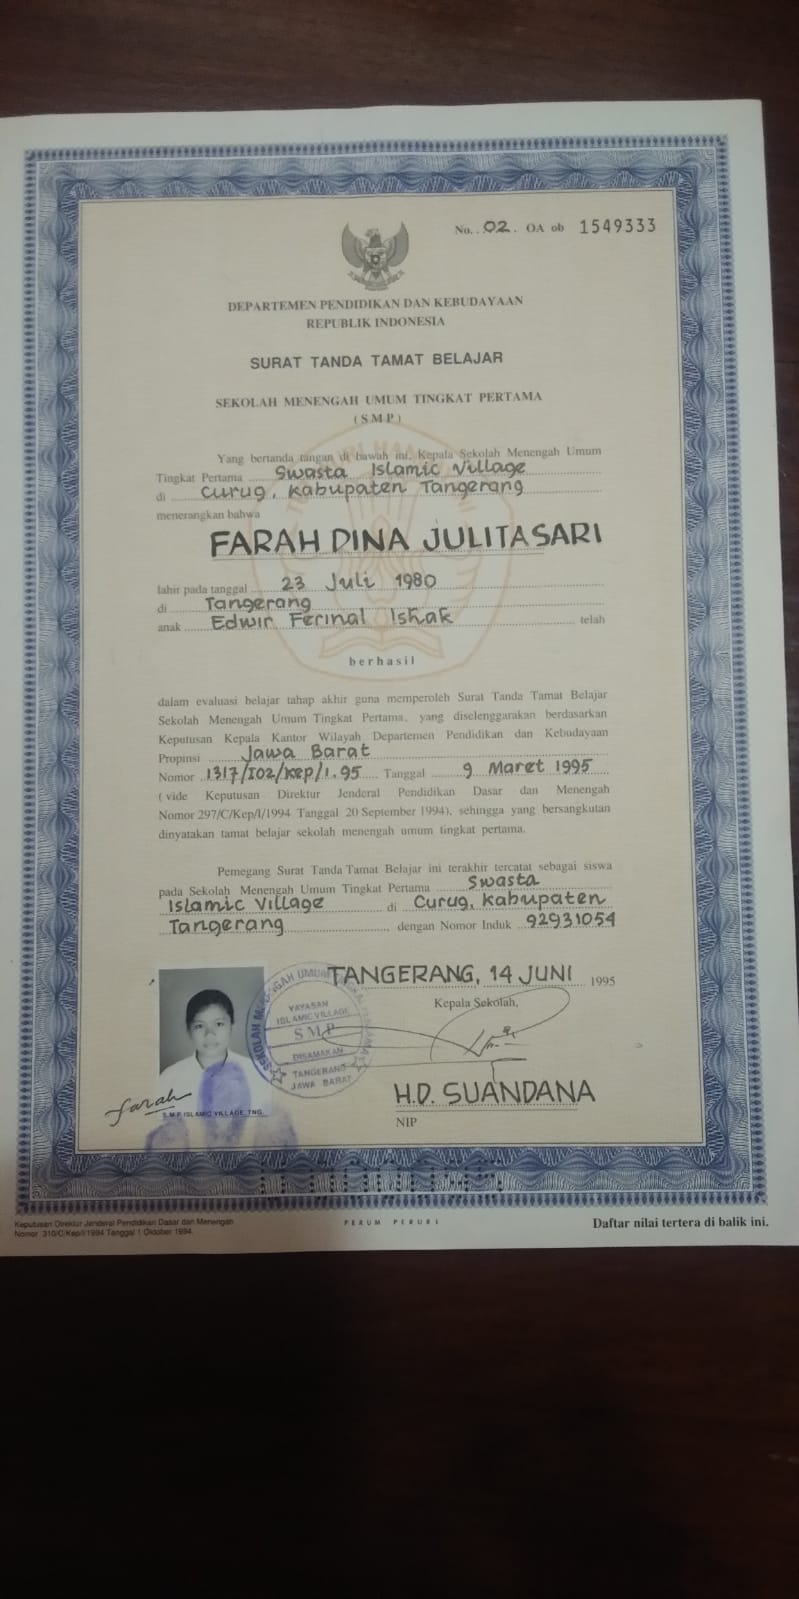 No. 02. OA ob 1549333
DEPARTEMEN PENDIDIKAN DAN KEBUDAYAAN
REPUBLIK INDONESIA
SURAT TANDA TAMAT BELAJAR
SEKOLAH MENENGAH UMUM TINGKAT PERTAMA
(SMP)
Yang bertanda tangan di bawah ini, Kepala Sekolah Menengah Umum
Tingkat Pertama Swasta Islamic Village
di Curug, Kabupaten Tangerang
menerangkan bahwa
FARAH DINA JULITASARI
lahir pada tanggal 23 Juli 1980
di Tangerang
anak Edwir Ferinal Ishak telah
berhasil
dalam evaluasi belajar tahap akhir guna memperoleh Surat Tanda Tamat Belajar
Sekolah Menengah Umum Tingkat Pertama, yang diselenggarakan berdasarkan
Keputusan Kepala Kantor Wilayah Departemen Pendidikan dan Kebudayaan
Propinsi Jawa Barat
Nomor 1317/I02/Kep/1.95 Tanggal 9 Maret 1995
(vide Keputusan Direktur Jenderal Pendidikan Dasar dan Menengah
Nomor 297/C/Kep/I/1994 Tanggal 20 September 1994), sehingga yang bersangkutan
dinyatakan tamat belajar sekolah menengah umum tingkat pertama.
Pemegang Surat Tanda Tamat Belajar ini terakhir tercatat sebagai siswa
pada Sekolah Menengah Umum Tingkat Pertama Swasta
Islamic Village di Curug, Kabupaten
Tangerang dengan Nomor Induk 92931054
TANGERANG, 14 JUNI 1995
Kepala Sekolah,
SEKOLAH MENENGAH UMUM TINGKAT PERTAMA
YAYASAN
ISLAMIC VILLAGE
SMP
DISAMAKAN
TANGERANG
JAWA BARAT
farah
S.M.P. ISLAMIC VILLAGE TNG.
H.D. SUANDANA
NIP
Keputusan Direktur Jenderal Pendidikan Dasar dan Menengah
Nomor 310/C/Kep/I/1994 Tanggal 1 Oktober 1994
PERUM PERURI
Daftar nilai tertera di balik ini.